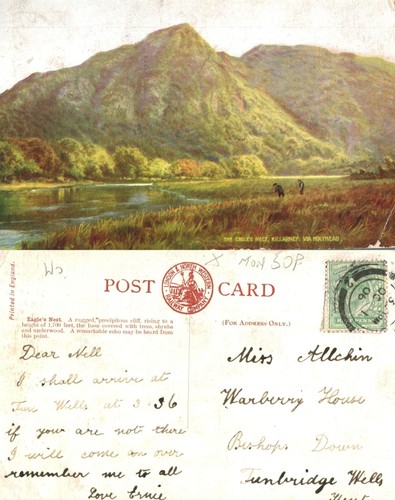 THE EAGLES NEST, KILLARNEY. VIA HOLYHEAD
Ws
x MON 50P
Printed in England.
POST CARD
LONDON & NORTH WESTERN
RAILWAY COMPANY
Eagle's Nest. A rugged, precipitous cliff, rising to a
height of 1,700 feet, the base covered with trees, shrubs
and underwood. A remarkable echo may be heard from
this point.
(FOR ADDRESS ONLY.)
Dear Nell
I shall arrive at
Tun Wells at 3-36
if you are not there
I will come on over
remember me to all
Love Ernie
Miss Allchin
Warberry House
Bishops Down
Tunbridge Wells
Kent